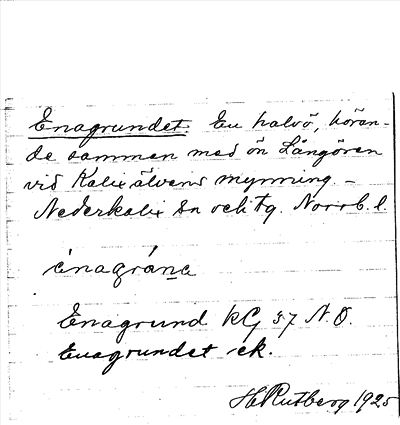 Enagrundet. En halvö, höran-
de sammen med ön Långören
vid Kalix älvens mynning -
Nederkalix sn och tg. Norrb. l.
énagráne
Enagrund kG 37 N.O.
Enagrundet ek.
H Rutberg 1925